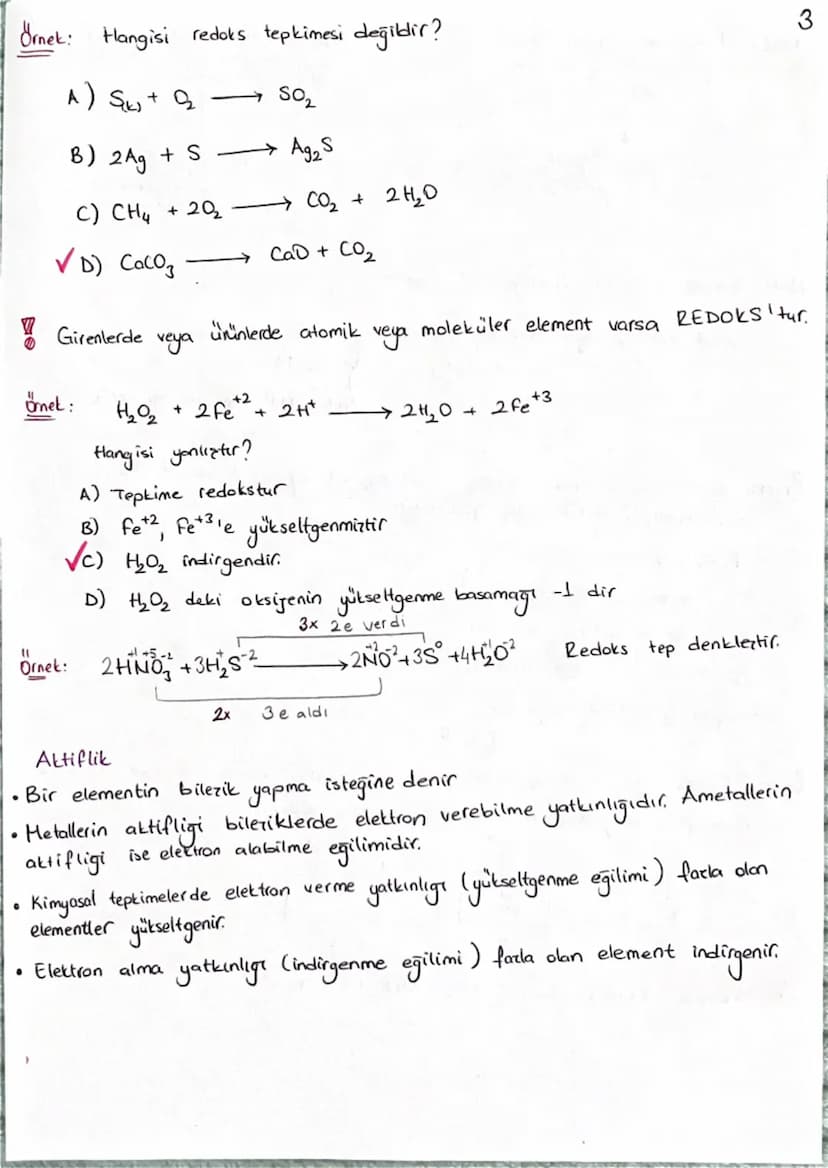 3
Örnek: Hangisi redoks tepkimesi değildir?
A) S(k) + O₂ ⟶ SO₂
B) 2Ag + S ⟶ Ag₂S
C) CH₄ + 2O₂ ⟶ CO₂ + 2H₂O
✓ D) CaCO₃ ⟶ CaO + CO₂
!! Girenlerde veya ürünlerde atomik veya moleküler element varsa REDOKS'tur.
Örnek: H₂O₂ + 2Fe⁺² + 2H⁺ ⟶ 2H₂O + 2Fe⁺³
Hangisi yanlıştır?
A) Tepkime redokstur
B) Fe⁺², Fe⁺³'e yükseltgenmiştir
✓ C) H₂O₂ indirgendir.
D) H₂O₂ daki oksijenin yükseltgenme basamağı -1 dir
3x 2e verdi
Örnek: 2H⁺¹N⁺⁵O₃⁻² + 3H₂⁺S⁻² ⟶ 2N⁺²O⁻² + 3S⁰ + 4H₂⁺¹O⁻² Redoks tep denkleştir.
2x 3e aldı
Aktiflik
• Bir elementin bileşik yapma isteğine denir
• Metallerin aktifliği bileşiklerde elektron verebilme yatkınlığıdır. Ametallerin
aktifliği ise elektron alabilme eğilimidir.
• Kimyasal tepkimelerde elektron verme yatkınlığı (yükseltgenme eğilimi) fazla olan
elementler yükseltgenir.
• Elektron alma yatkınlığı (indirgenme eğilimi) fazla olan element indirgenir.